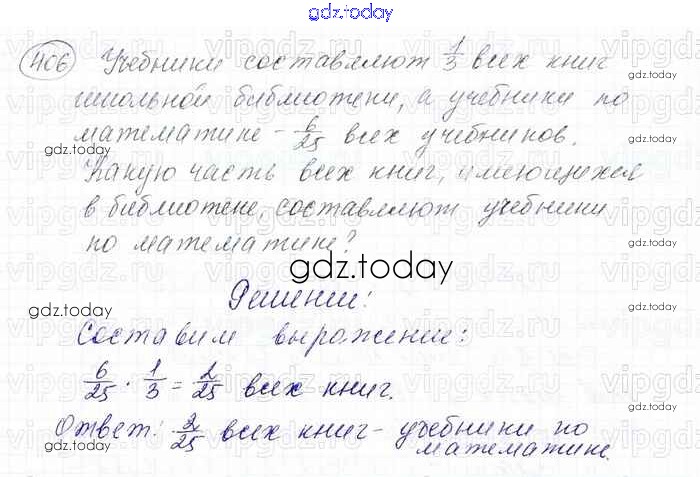 gdz.today
406 Учебники составляют 1/3 всех книг
школьной библиотеки, а учебники по
математике - 6/25 всех учебников.
Какую часть всех книг, имеющихся
в библиотеке, составляют учебники
по математике?
gdz.today
Решение:
Составим выражение:
6/25 · 1/3 = 2/25 всех книг.
Ответ: 2/25 всех книг - учебники по
математике.